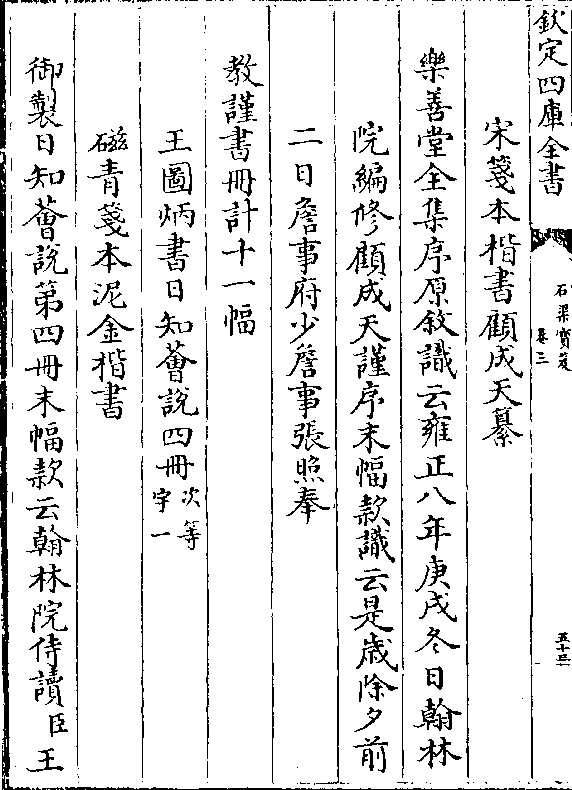 欽定四庫全書
石渠寳笈
卷三
五十三
宋箋本楷書顧成天纂
樂善堂全集序原敘識云雍正八年庚戌冬日翰林
院編修顧成天謹序末幅款識云是歲除夕前
二日詹事府少詹事張照奉
教謹書冊計十一幅
王圖炳書日知薈說四冊次等宇一
磁青箋本泥金楷書
御製日知薈說第四冊末幅款云翰林院侍讀臣王